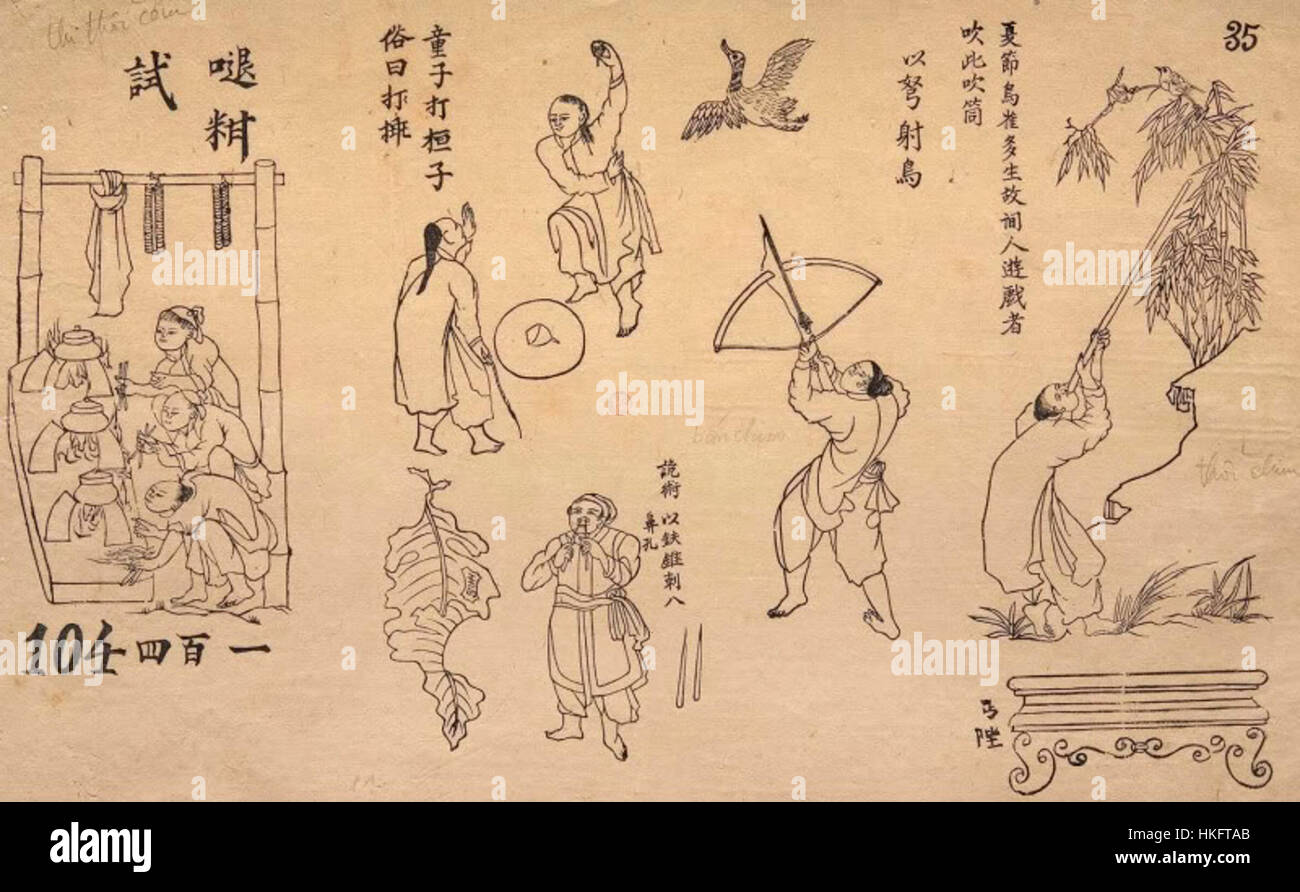 35
夏節鳥雀多生故閒人遊戲者
吹此吹筒
以弩射鳥
童子打桓子
俗曰打𢱖
試
thi thổi cơm
詭術
以鉄錐刺入
鼻孔
bắn chim
thổi chim
104
一百四
alamy
Image ID: HKFTAB
www.alamy.com